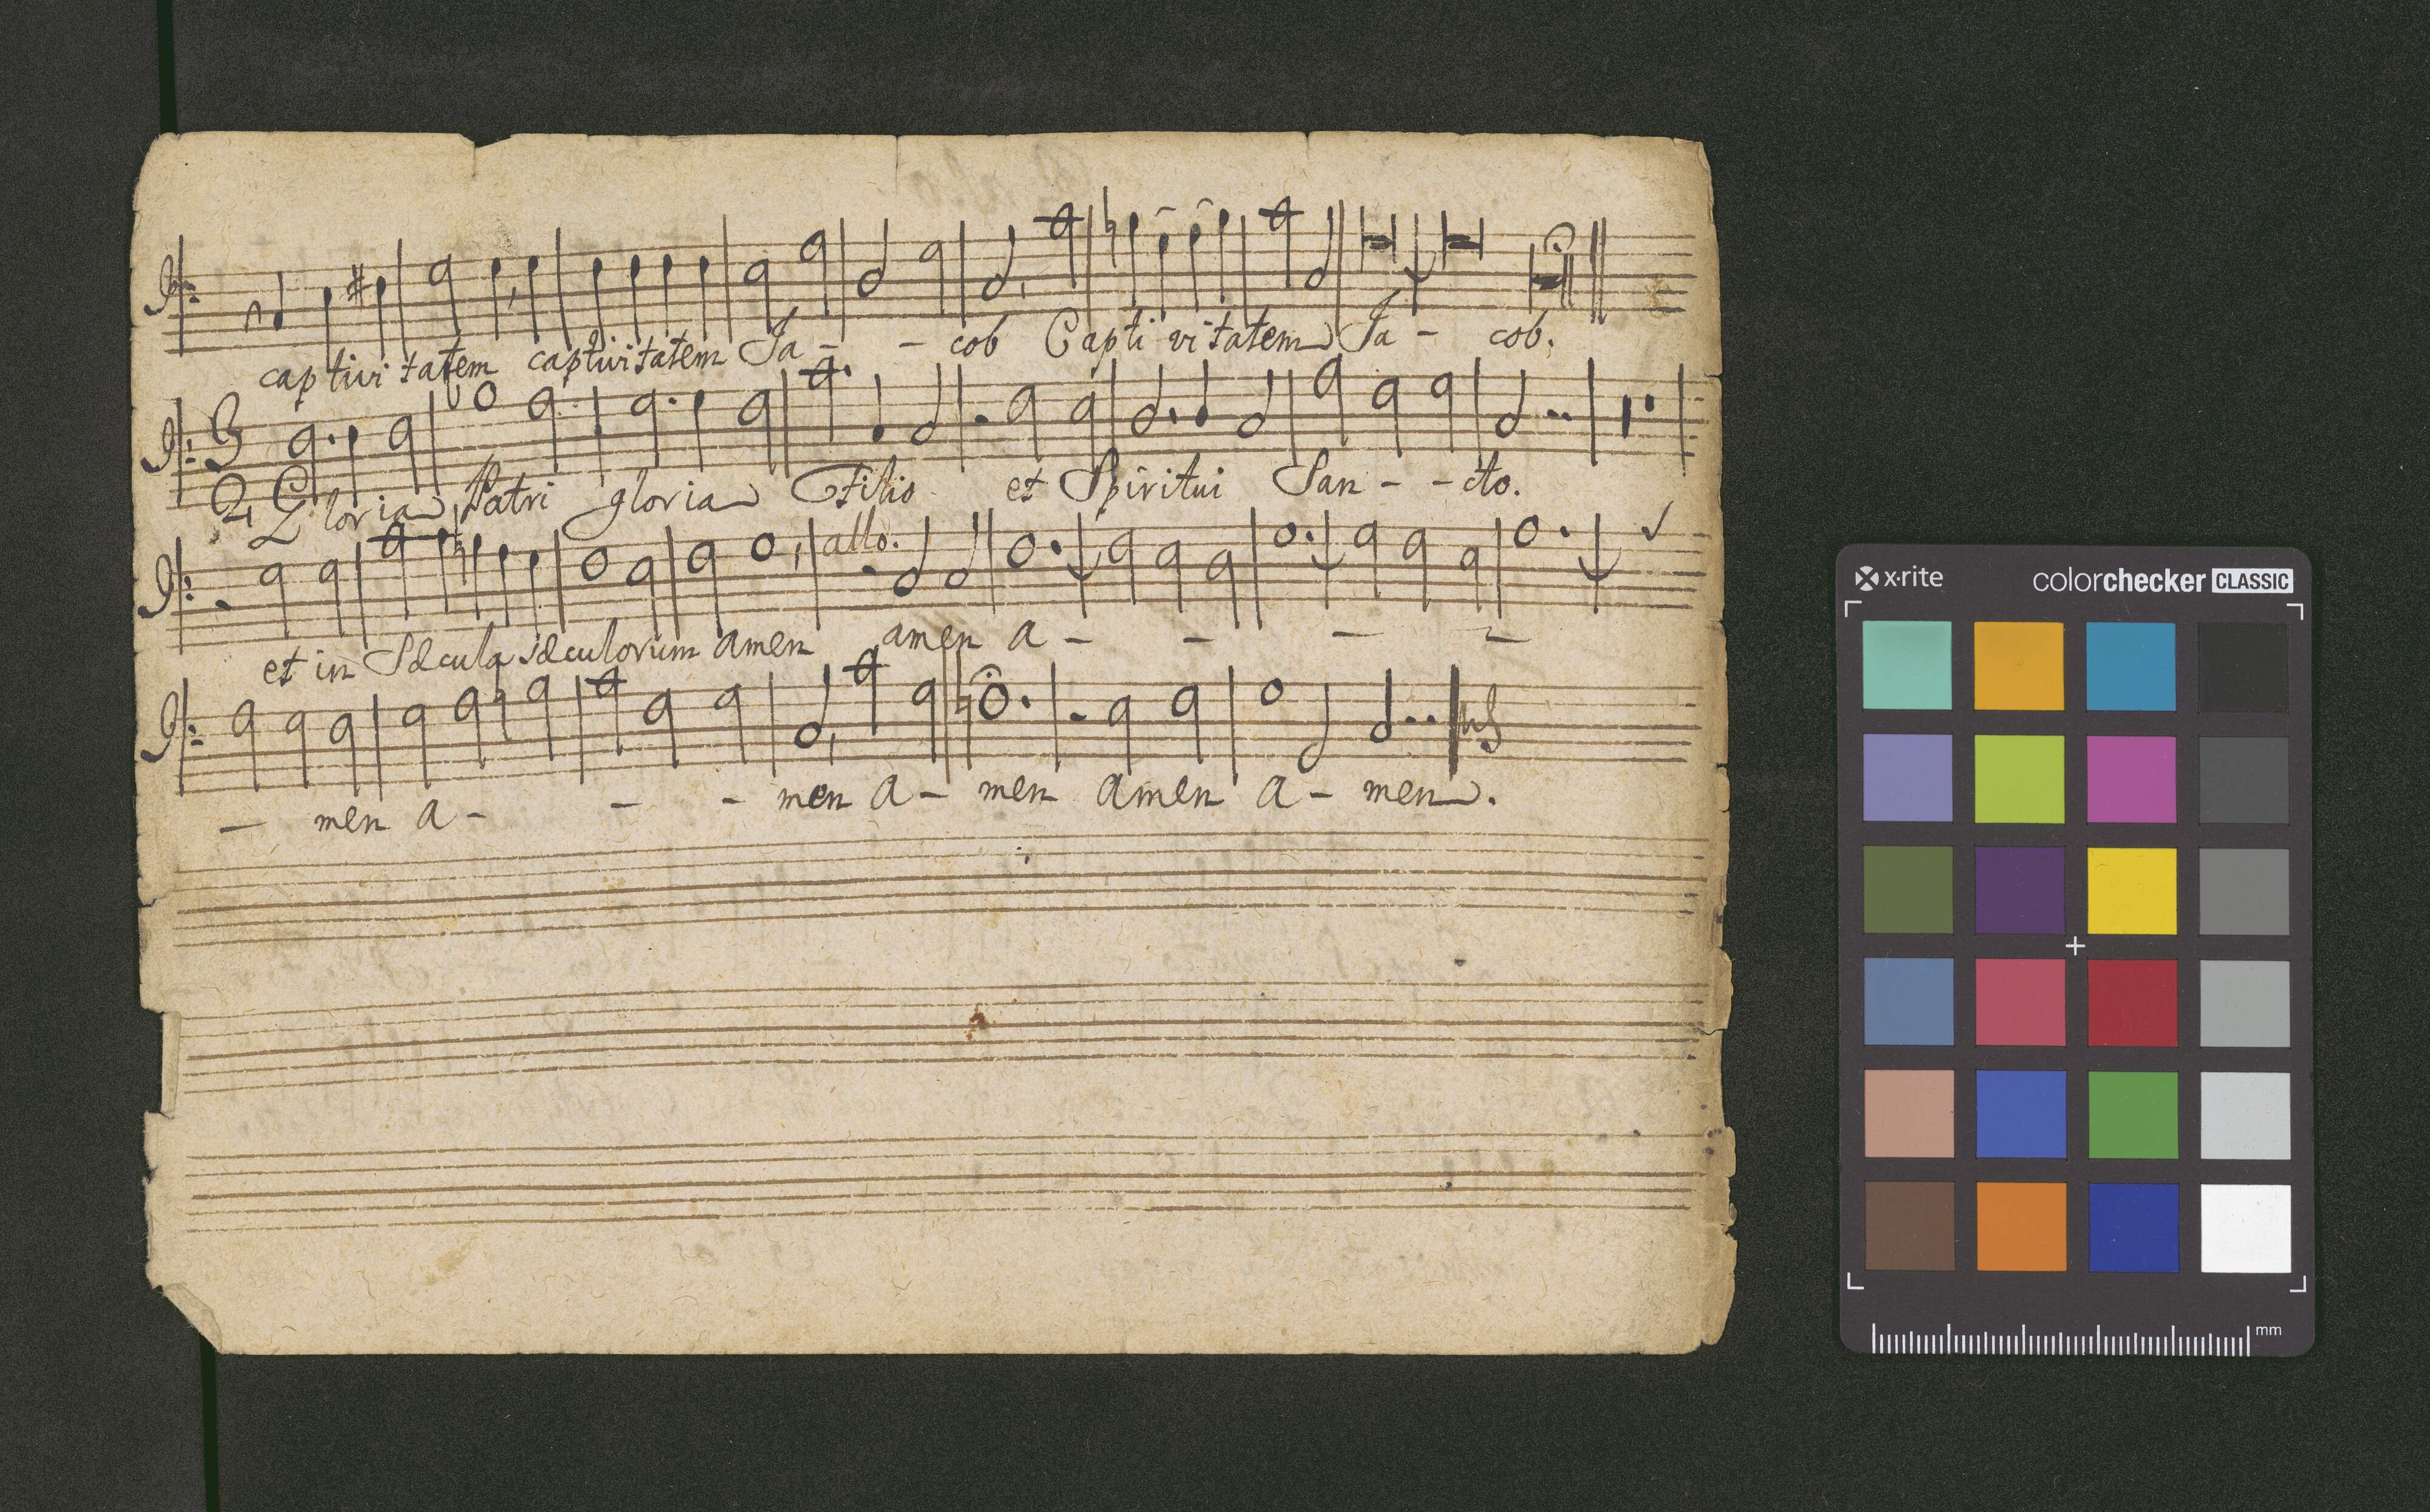 captivitatem captivitatem Ja - - cob Captivitatem Ja - cob.
3
2
Gloria Patri gloria Filio et Spiritui San - - cto.
allo.
et in Sæcula sæculorum amen amen a - - - -
- men a - - - men a - men amen a - men.
x-rite
colorchecker CLASSIC
mm